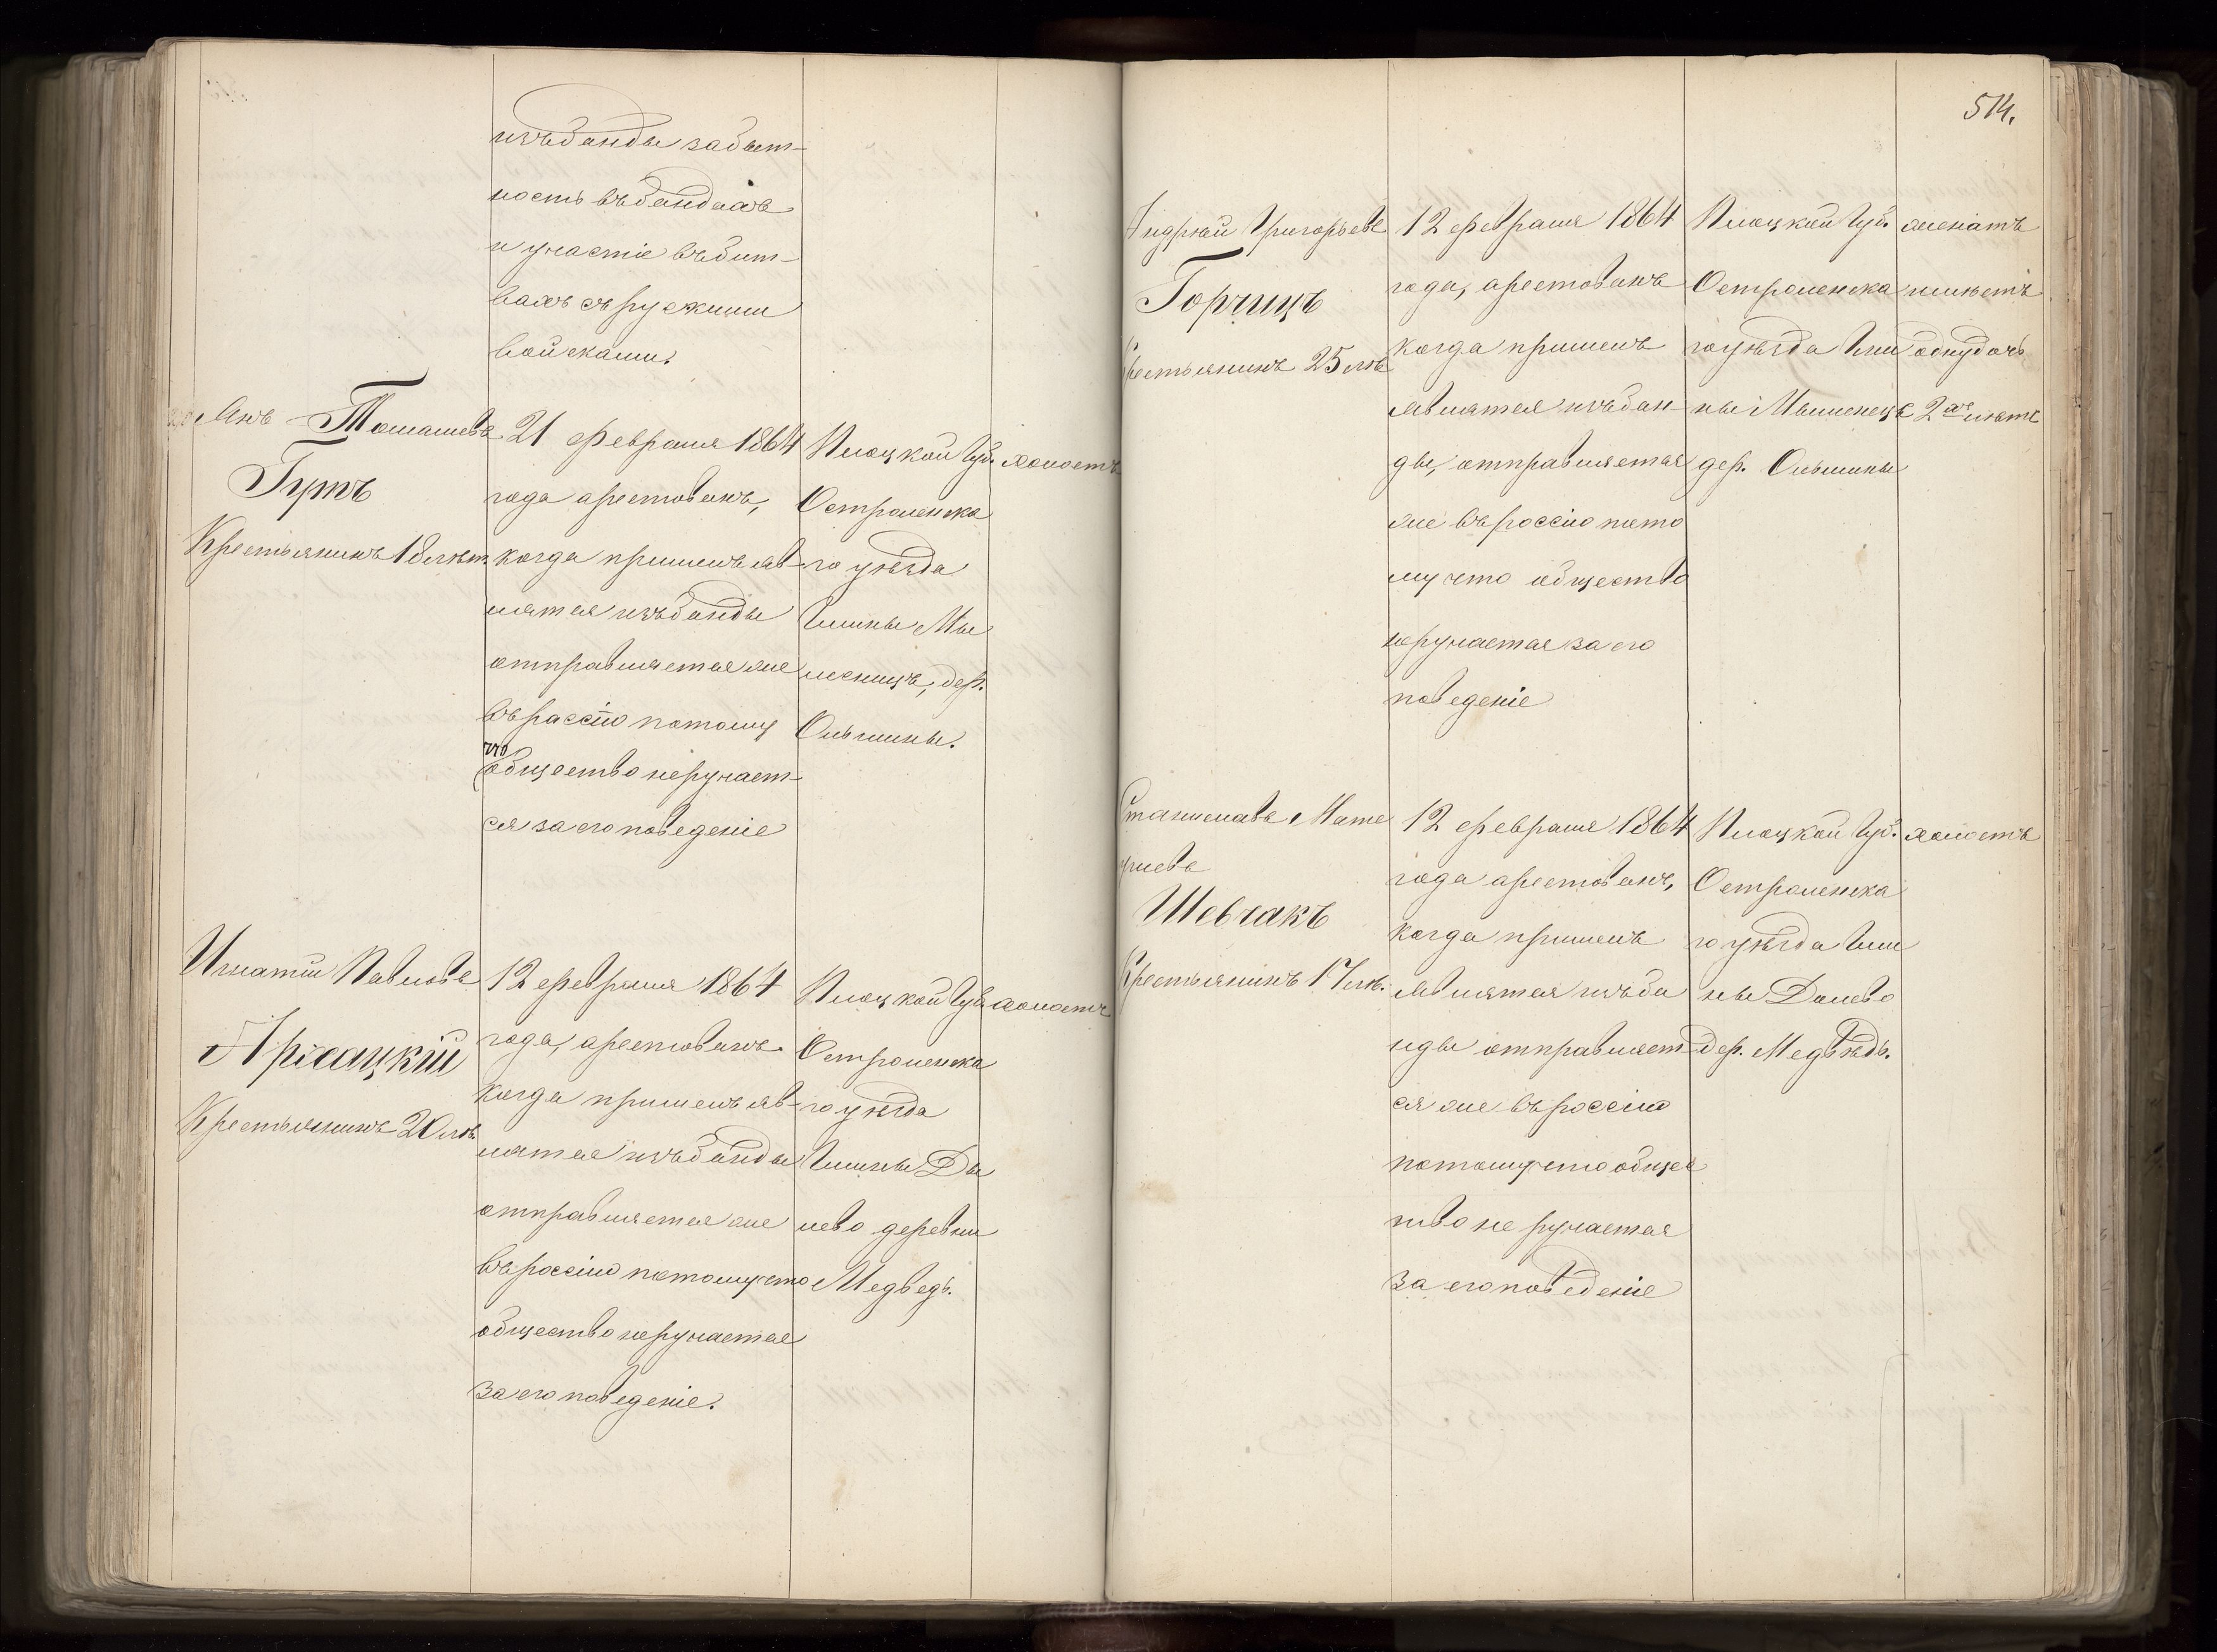 изъ банды за быт-
ность въ бандахъ
и участіе въ бит-
вахъ съ рускими
войсками.
Янъ Томашевъ
Гуртъ
Крестьянинъ 18 лѣт.
21 февраля 1864
года арестованъ,
когда пришелъ яв-
лятся изъ банды
отправляется же
въ россію потому
что
общество неручает-
ся за его поведеніе
Плоцкой Губ.
Остроленска
го уѣзда
Гмины Мы
шенецъ, дер.
Ольшины.
холостъ
Игнатій Павловъ
Арсацкій
Крестьянинъ 20 лѣ.
12 февраля 1864
года, арестованъ
когда пришелъ яв-
лятся изъ банды
отправляется же
въ россію потому что
общество неручается
за его поведеніе.
Плоцкой Губ.
Остроленска
го уѣзда
Гмины Ды
лево деревни
Медведь.
холостъ
514.
Андрѣй Григорьевъ
Горчицъ
Крестьянинъ 25 лѣ
12 февраля 1864
года, арестованъ
когда пришелъ
являтся изъ бан-
ды, отправляется
же въ россію пото
му что общество
неручается за его
поведеніе
Плоцкой Губ.
Остроленска
го уѣзда Гми
ны Мышенецъ
дер. Ольшины
женатъ
имѣетъ
одну дочь
2хъ лѣтъ
Станиславъ Мате
ушевъ
Шевчакъ
Крестьянинъ 17 лѣ.
12 февраля 1864
года арестованъ,
когда пришелъ
являтся изъ ба
нды отправляет-
ся же въ россію
потому что общес
тво не ручается
за его поведеніе
Плоцкой Губ.
Остроленска
го уѣзда Гми
ны Далево
дер. Медвѣдь.
холостъ